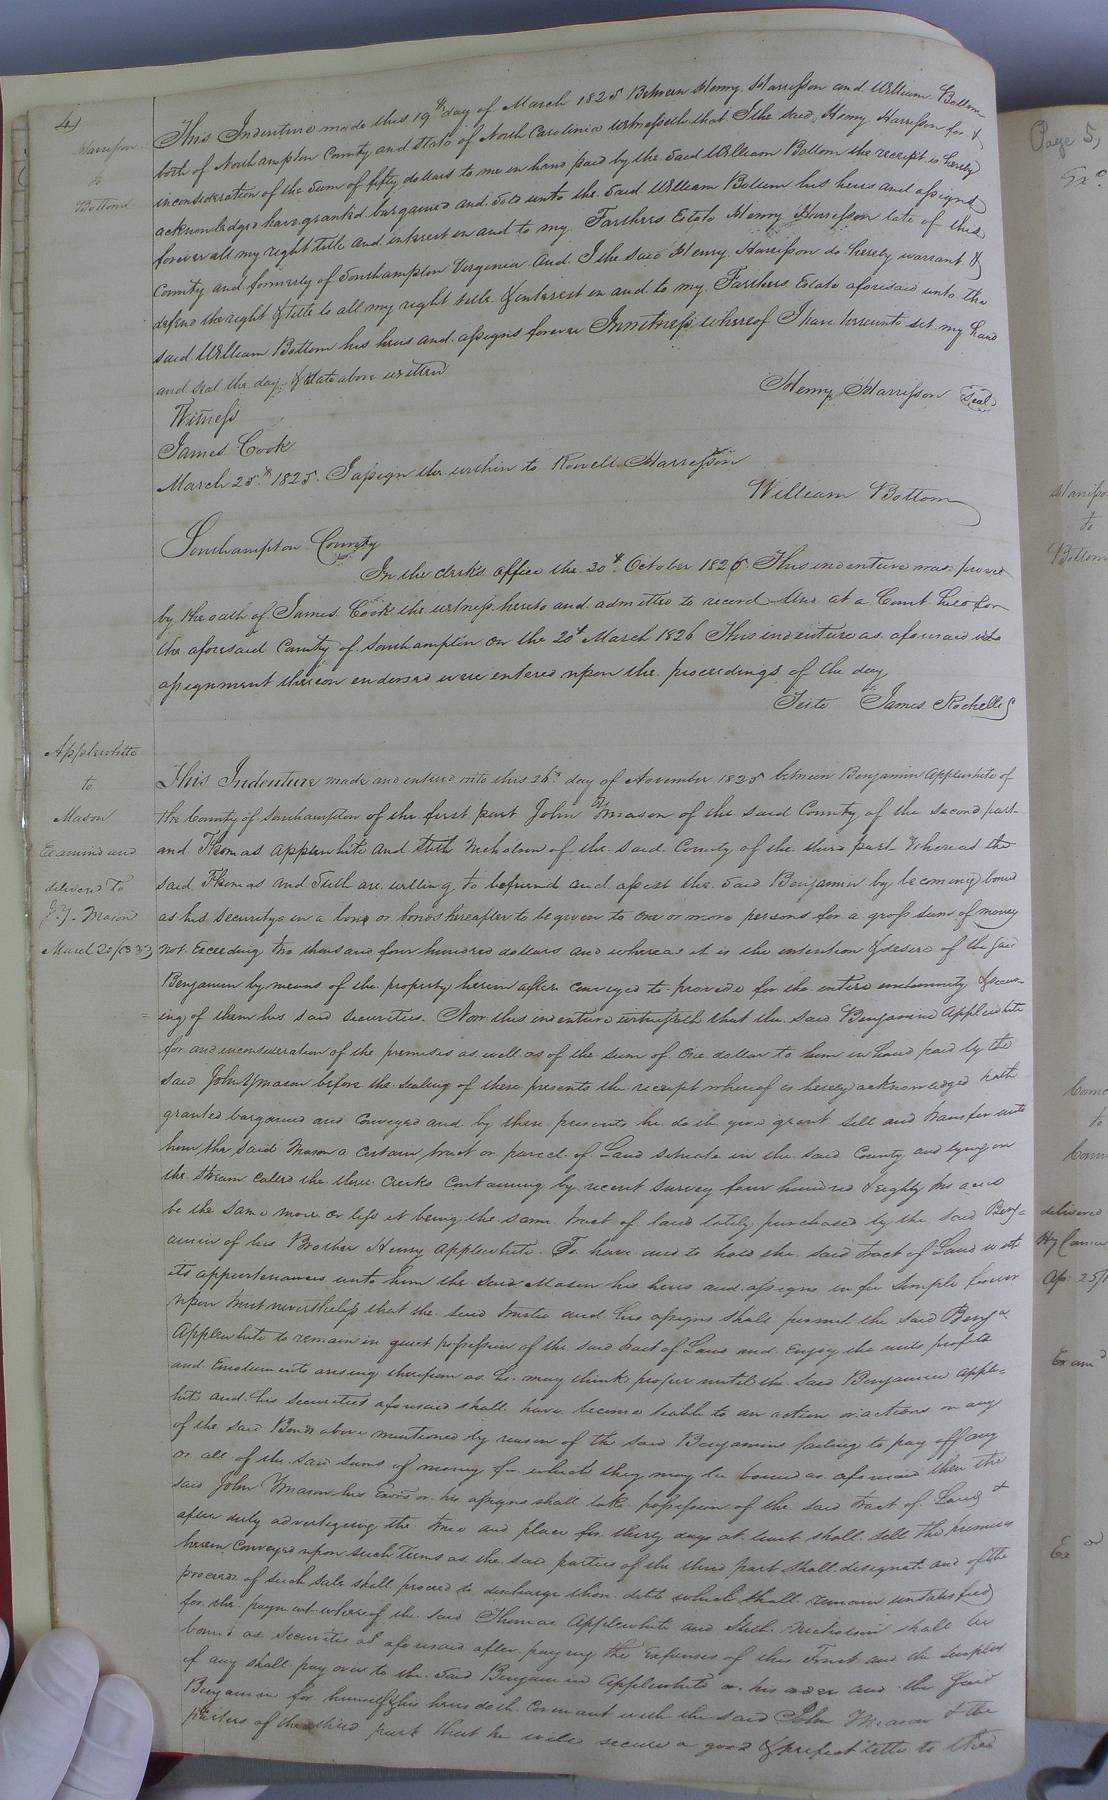 4)
Harrisson
to
Bottom
This Indenture made this 19th day of March 1825 Between Henry Harrisson and William Bottom
both of Northampton County and State of North Carolinia witnesseth that I the said Henry Harrisson for &
inconsideration of the Sum of fifty dollars to me in hand paid by the Said William Bottom the receipt is hereby
acknowledged have granted bargained and Sold unto the Said William Bottom his heirs and assigns
forever all my right title and interest in and to my Farthers Estate Henry Harrisson late of this
County and formerly of Southampton Verginia And I the said Henry Harrisson do hereby warrant &
defend the right & title to all my right title & interest in and to my Farthers Estate aforesaid unto the
said William Bottom his heirs and assigns forever Inwitness whereof I have hereunto set my hand
and seal the day & date above written
Henry Harrisson Seal
Witness
James Cook
March 25th 1825 I assign the within to Rowell Harrisson
William Bottom
Southampton County
In the clerks office the 30th October 1826 This indenture was proved
by the oath of James Cook the witness hereto and admitted to record And at a Court held for
the aforesaid County of Southampton on the 20th March 1826 This indenture as aforesaid
assignment thereon endorsed were entered upon the proceedings of the day
Teste James Rochelle
Applewhite
to
Mason
Examined and
delivered to
J. Y. Mason
March 20/1833
This Indenture made and entered into this 26th day of November 1825 between Benjamin Applewhite of
the County of Southampton of the first part John Y Mason of the said County of the second part
and Thomas Applewhite and Seth Nicholson of the said County of the third part Whereas the
said Thomas and Seth are willing to befriend and assist the said Benjamin by becoming bound
as his securitys in a bond or bonds hereafter to be given to one or more persons for a gross sum of money
not Exceeding two thousand four hundred dollars and whereas it is the intention & desire of the said
Benjamin by means of the property herein after conveyed to provide for the entire indemnity & secur-
=ing of them his said Securities. Now this indenture witnesseth that the said Benjamin Applewhite
for and inconsideration of the premises as well as of the sum of One dollar to him in hand paid by the
said John Y Mason before the sealing of these presents the receipt whereof is hereby acknowledged hath
granted bargained and Conveyed and by these presents he doth give grant sell and transfer unto
him the said Mason a certain tract or parcel of Land situate in the said County and lying on
the stream called the three Creeks Containing by recent survey four hundred & eighty two acres
be the same more or less it being the same tract of land lately purchased by the said Benj=
amin of his Brother Henry Applewhite. To have and to hold the said tract of Land with
its appurtenances unto him the said Mason his heirs and assigns in fee simple forever
upon trust nevertheless that the said trustee and his assigns shall permit the said Benja
Applewhite to remain in quiet possession of the said tract of Land and Enjoy the rents profits
and Emoluments arising therefrom as he may think proper until the said Benjamin Apple=
hite and his securities aforesaid shall have become liable to an action or actions on any
of the said Bonds above mentioned by reason of the said Benjamins failing to pay off any
or all of the said sums of money for which they may be bound as aforesaid then the
said John Y Mason his Exors or his assigns shall take possession of the said tract of Land &
after duly advertizeing the time and place for thirty days at least shall sell the premises
herein Conveyed upon such terms as the said parties of the third part shall designate and of the
proceeds of such sale shall proceed to discharge them debts which shall remain unsatisfied
for the payment whereof the said Thomas Applewhite and Seth Nicholson shall be
bound as Securities as aforesaid after paying the Expenses of this Trust and the surplus
if any shall pay over to the said Benjamin Applewhite or his order and the said
Benjamin for himself & his heirs doth Covenant with the said John Y Mason & the
parties of the third part that he will secure a good & perfect title to the
Page 5,
Exd
Harrisson
to
Bottom
to
delivered
Ap 25/
Examd
Exd